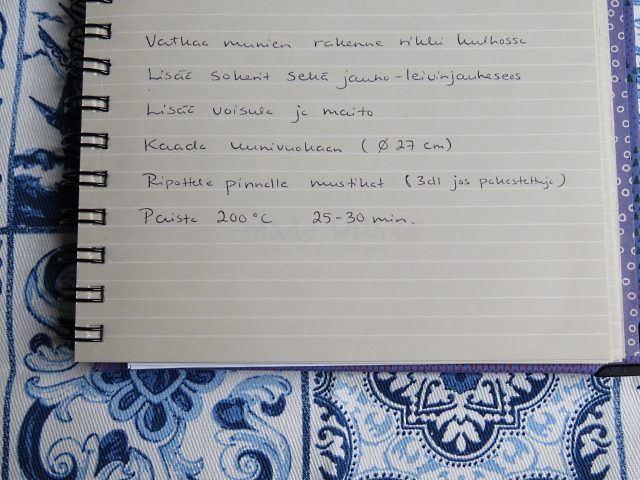 Vatkaa munien rakenne rikki kulhossa
Lisää sokerit sekä jauho-leivinjauheseos
Lisää voisula ja maito
Kaada uunivuokaan (Ø 27 cm)
Ripottele pinnalle mustikat (3dl jos pakastettuja)
Paista 200°C 25-30 min.
made with